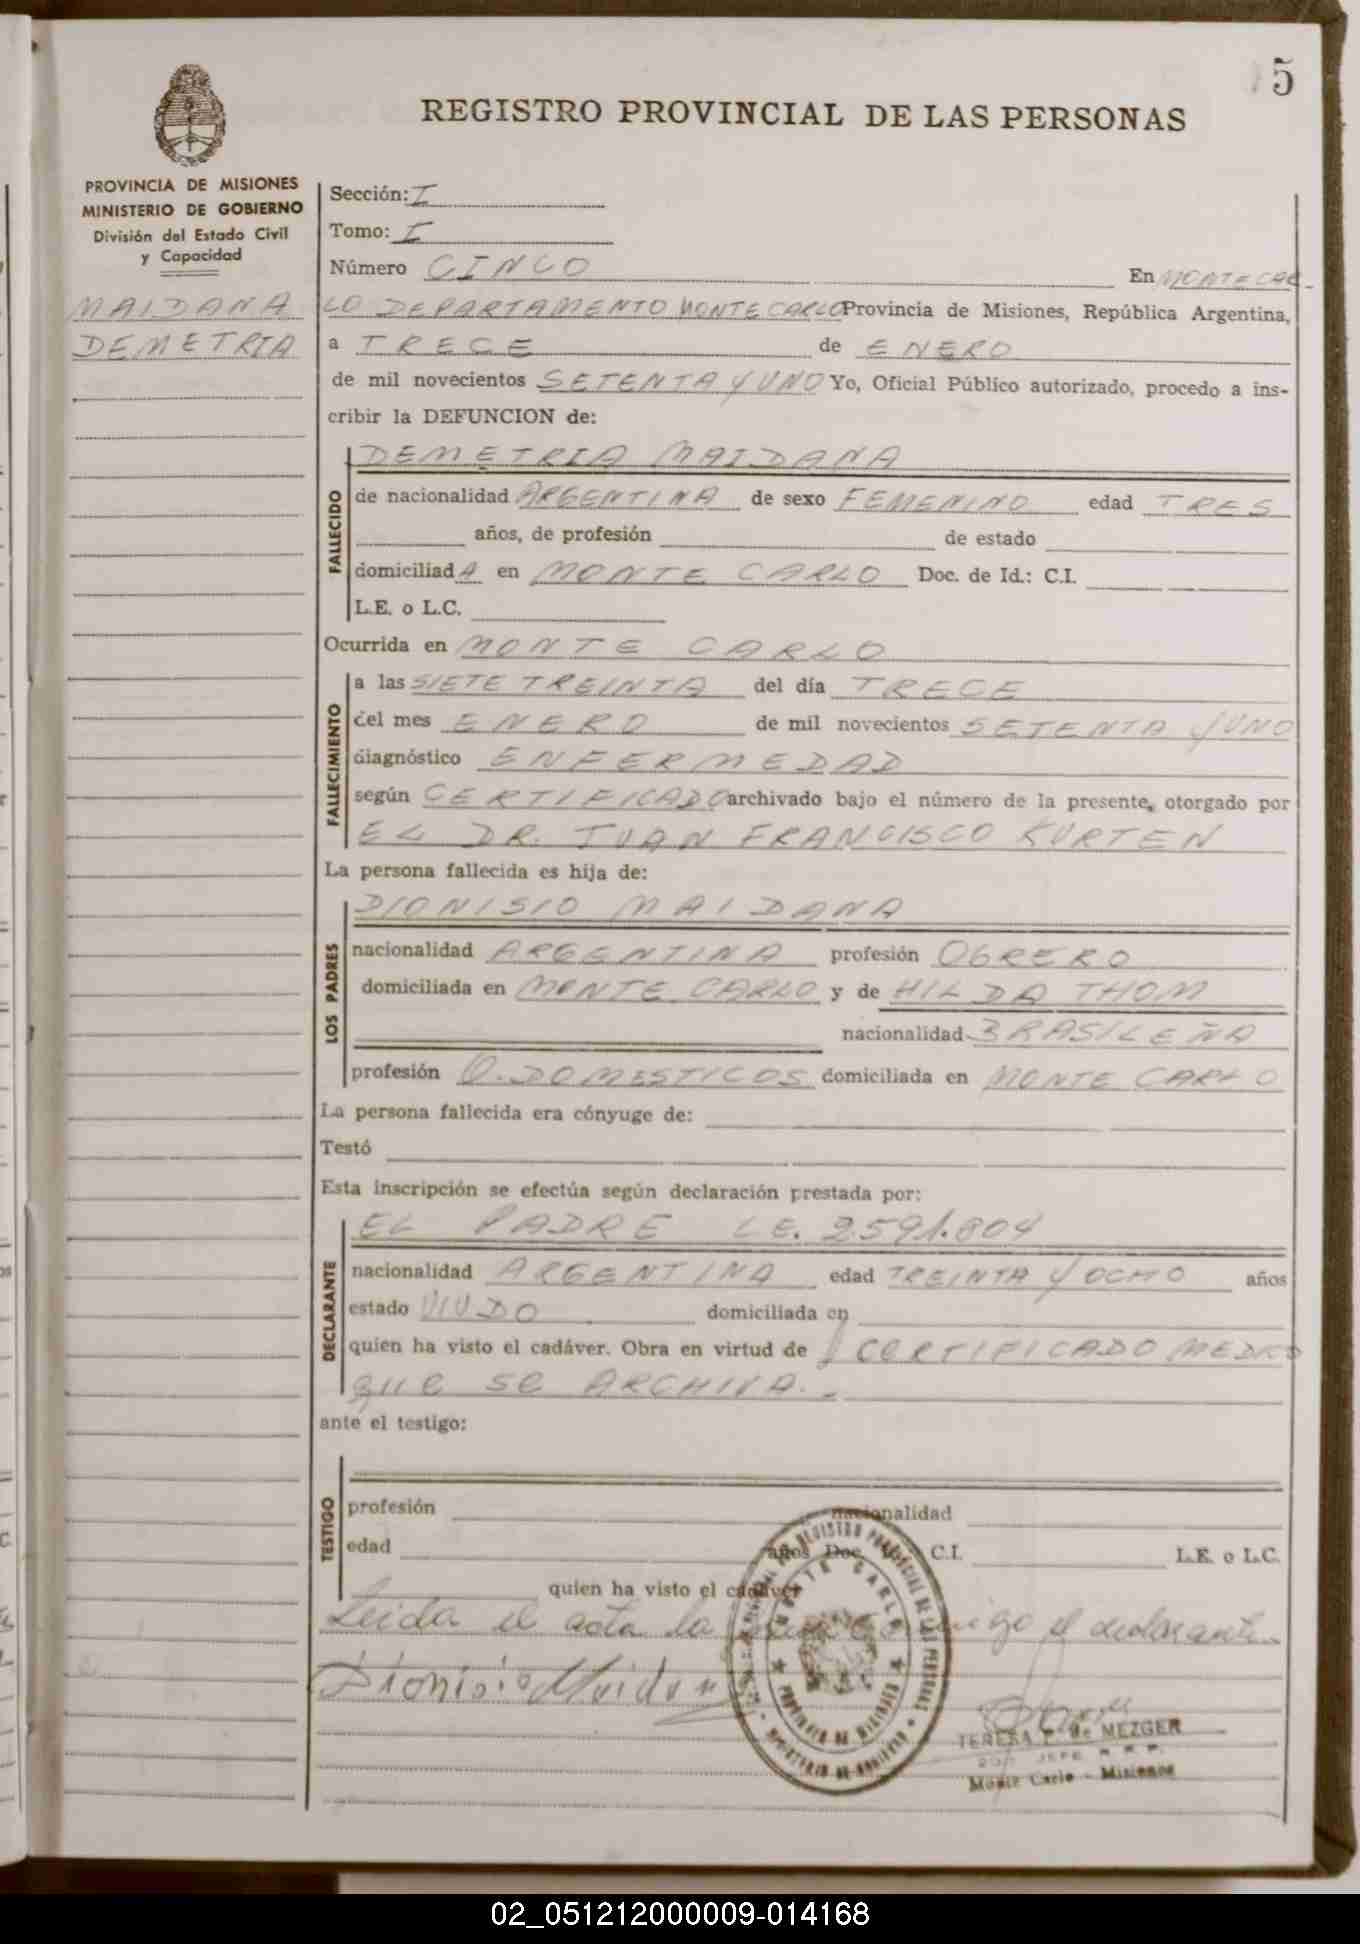 5
REGISTRO PROVINCIAL DE LAS PERSONAS
PROVINCIA DE MISIONES
MINISTERIO DE GOBIERNO
División del Estado Civil
y Capacidad
MAIDANA
DEMETRIA
Sección: I
Tomo: I
Número CINCO En MONTE CAR-
LO DEPARTAMENTO MONTE CARLO Provincia de Misiones, República Argentina,
a TRECE de ENERO
de mil novecientos SETENTA Y UNO Yo, Oficial Público autorizado, procedo a ins-
cribir la DEFUNCION de:
FALLECIDO
DEMETRIA MAIDANA
de nacionalidad ARGENTINA de sexo FEMENINO edad TRES
años, de profesión de estado
domiciliadA en MONTE CARLO Doc. de Id.: C.I.
L.E. o L.C.
Ocurrida en MONTE CARLO
FALLECIMIENTO
a las SIETE TREINTA del día TRECE
del mes ENERO de mil novecientos SETENTA Y UNO
diagnóstico ENFERMEDAD
según CERTIFICADO archivado bajo el número de la presente, otorgado por
EL DR. JUAN FRANCISCO KURTEN
La persona fallecida es hija de:
LOS PADRES
DIONISIO MAIDANA
nacionalidad ARGENTINA profesión OBRERO
domiciliada en MONTE CARLO y de HILDA THOM
nacionalidad BRASILEÑA
profesión Q. DOMESTICOS domiciliada en MONTE CARLO
La persona fallecida era cónyuge de:
Testó
Esta inscripción se efectúa según declaración prestada por:
DECLARANTE
EL PADRE LE. 2591.804
nacionalidad ARGENTINA edad TREINTA Y OCHO años
estado VIUDO domiciliada en
quien ha visto el cadáver. Obra en virtud de CERTIFICADO MEDICO
que se ARCHIVA.-
ante el testigo:
TESTIGO
profesión nacionalidad
edad años Doc. C.I. L.E. o L.C.
quien ha visto el cadáver
Leida el acta la migo el declarante
Dionisio Maidana
REGISTRO PROVINCIAL DE LAS PERSONAS
MONTE CARLO
PROVINCIA DE MISIONES
MINISTERIO DE GOBIERNO
TERESA F. de MEZGER
JEFE R.P.P.
Monte Carlo - Misiones
02_051212000009-014168